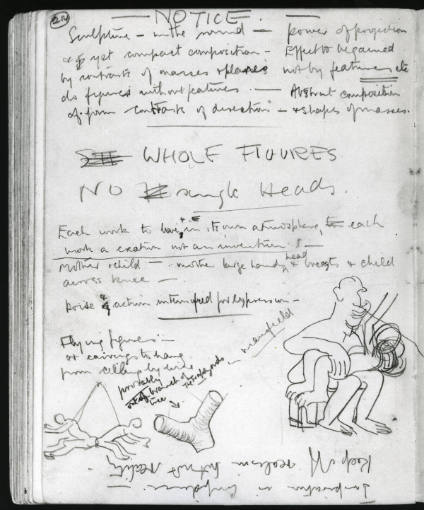 NOTICE.
Sculpture – in the round – power of projection
yet compact composition – Effect to be gained
by contrasts of masses & planes not by features etc
do figures without features. – Abstract composition
of form contrasts of direction – & shapes of masses.
WHOLE FIGURES
NO single Heads.
Each work to have its own atmosphere, each
work a creation not an invention
Mother & child – mother large hands, head & breasts & child
across knee –
Poise & action intensified for expression –
Flying figures –
or carvings to hang
from ceiling by wire
probably
branch
tree
in mansfield
Keep realism
Inspiration